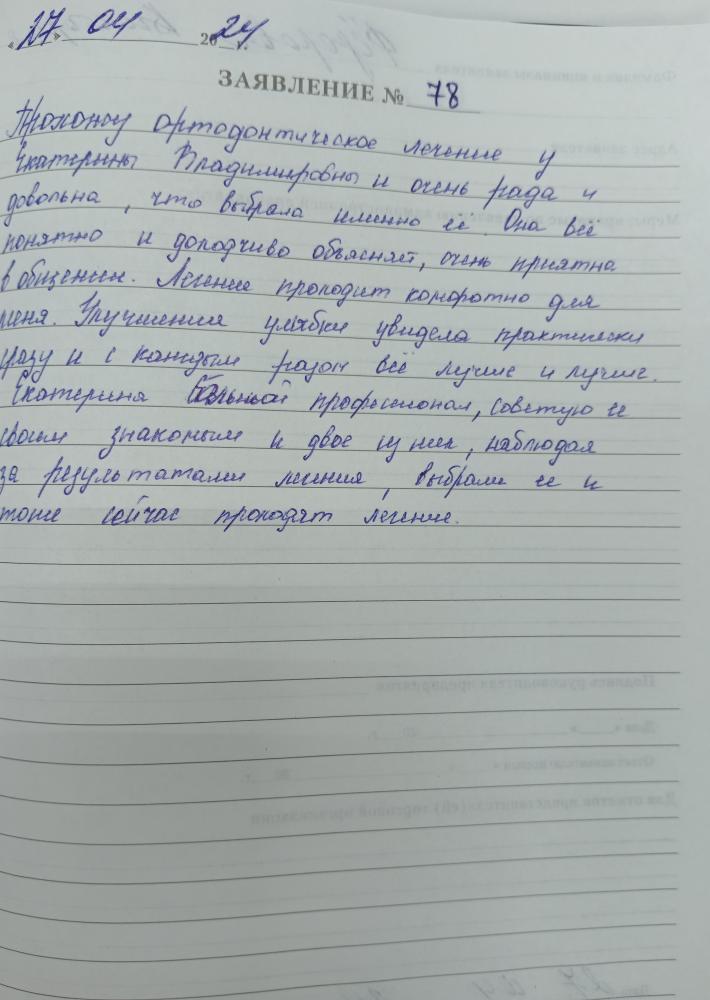 «27» 04 2024 г.
ЗАЯВЛЕНИЕ № 78
Прохожу ортодонтическое лечение у
Екатерины Владимировны и очень рада и
довольна, что выбрала именно её. Она всё
понятно и доходчиво объясняет, очень приятна
в общении. Лечение проходит комфотно для
меня. Улучшения улыбки увидела практически
сразу и с каждым разом всё лучше и лучше.
Екатерина большой профессионал, советую ее
своим знакомым и двое из них, наблюдая
за результатами лечения, выбрали ее и
тоже сейчас проходят лечение.